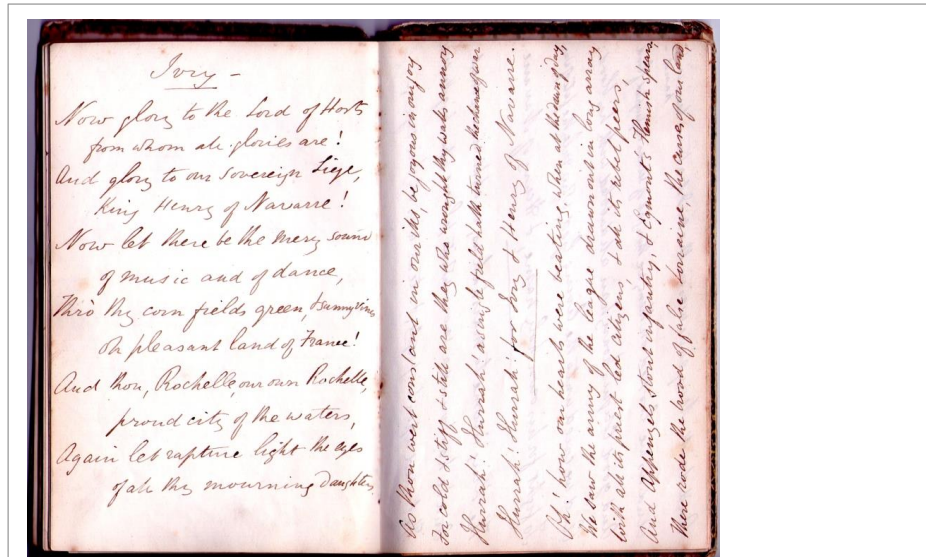 Ivry -
Now glory to the Lord of Hosts
from whom all glories are!
And glory to our Sovereign Liege,
King Henry of Navarre!
Now let there be the merry sound
of music and of dance,
Thro' thy corn fields green, & sunny vines
oh pleasant land of France!
And thou, Rochelle, our own Rochelle,
proud city of the waters,
Again let rapture light the eyes
of all thy mourning daughters,
As thou wert constant in our ills, be joyous in our joy
For cold & stiff & still are they who wrought thy walls annoy
Hurrah! Hurrah! a single field hath turned the chance of war
Hurrah! Hurrah! for Ivry & Henry of Navarre.
Oh! how our hearts were beating, when at the dawn of day,
We saw the army of the league drawn out in long array
With all its priest led citizens & all its rebel peers,
And Appenzels stout infantry, & Egmont's Flemish spears,
There rode the brood of false Lorraine, the curses of our land,